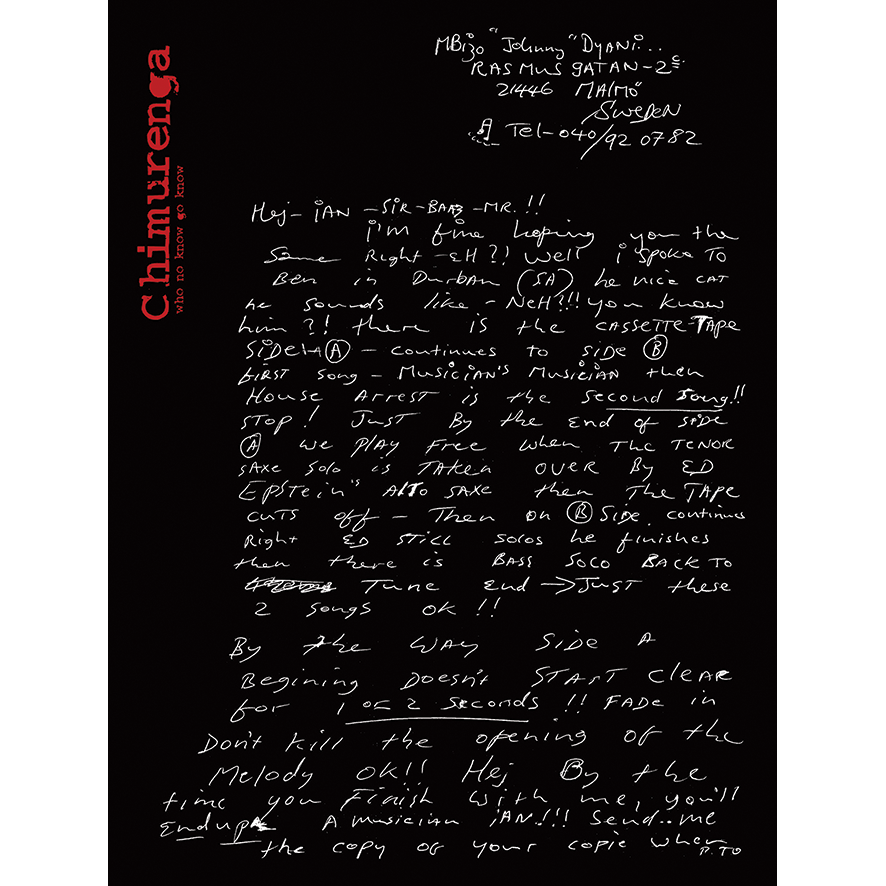 Chimurenga
who no know go know
MBizo "Johnny" DYANi...
RASMUS gATAN-2c
21446 MALMÖ
SWEDEN
Tel-040/92 0782
Hej- iAN -SiR-BAAS-MR.!!
i'm fine hoping you the
Same Right -EH?! Well i spoke TO
Ben in Durban (SA) he nice CAT
he sounds like - NeH?!!! you know
him?! there is the CASSETTE-TAPE
SiDe A - continues to SiDe B
first song - Musician's Musician then
House Arrest is the second song!!
STOP! JUST By the End of SiDe
A we play free when The TENOR
SAXe solo is TAKen over By ED
EpSTein's ALTO SAXe then The TAPe
cuTS off - Then on B Side, continues
Right ED STiLL solos he finishes
then there is BASS SOLO BACK TO
Tune end → JuST these
2 songs OK!!
By the WAY Side A
Begining Doesn't START CLeAR
for 1 or 2 seconds !! FADe in
Don't kill the opening of the
Melody ok!! Hej By the
time you Finish with me, you'll
End up A Musician iAN!!! Send..me
the copy of your copie when
P.TO